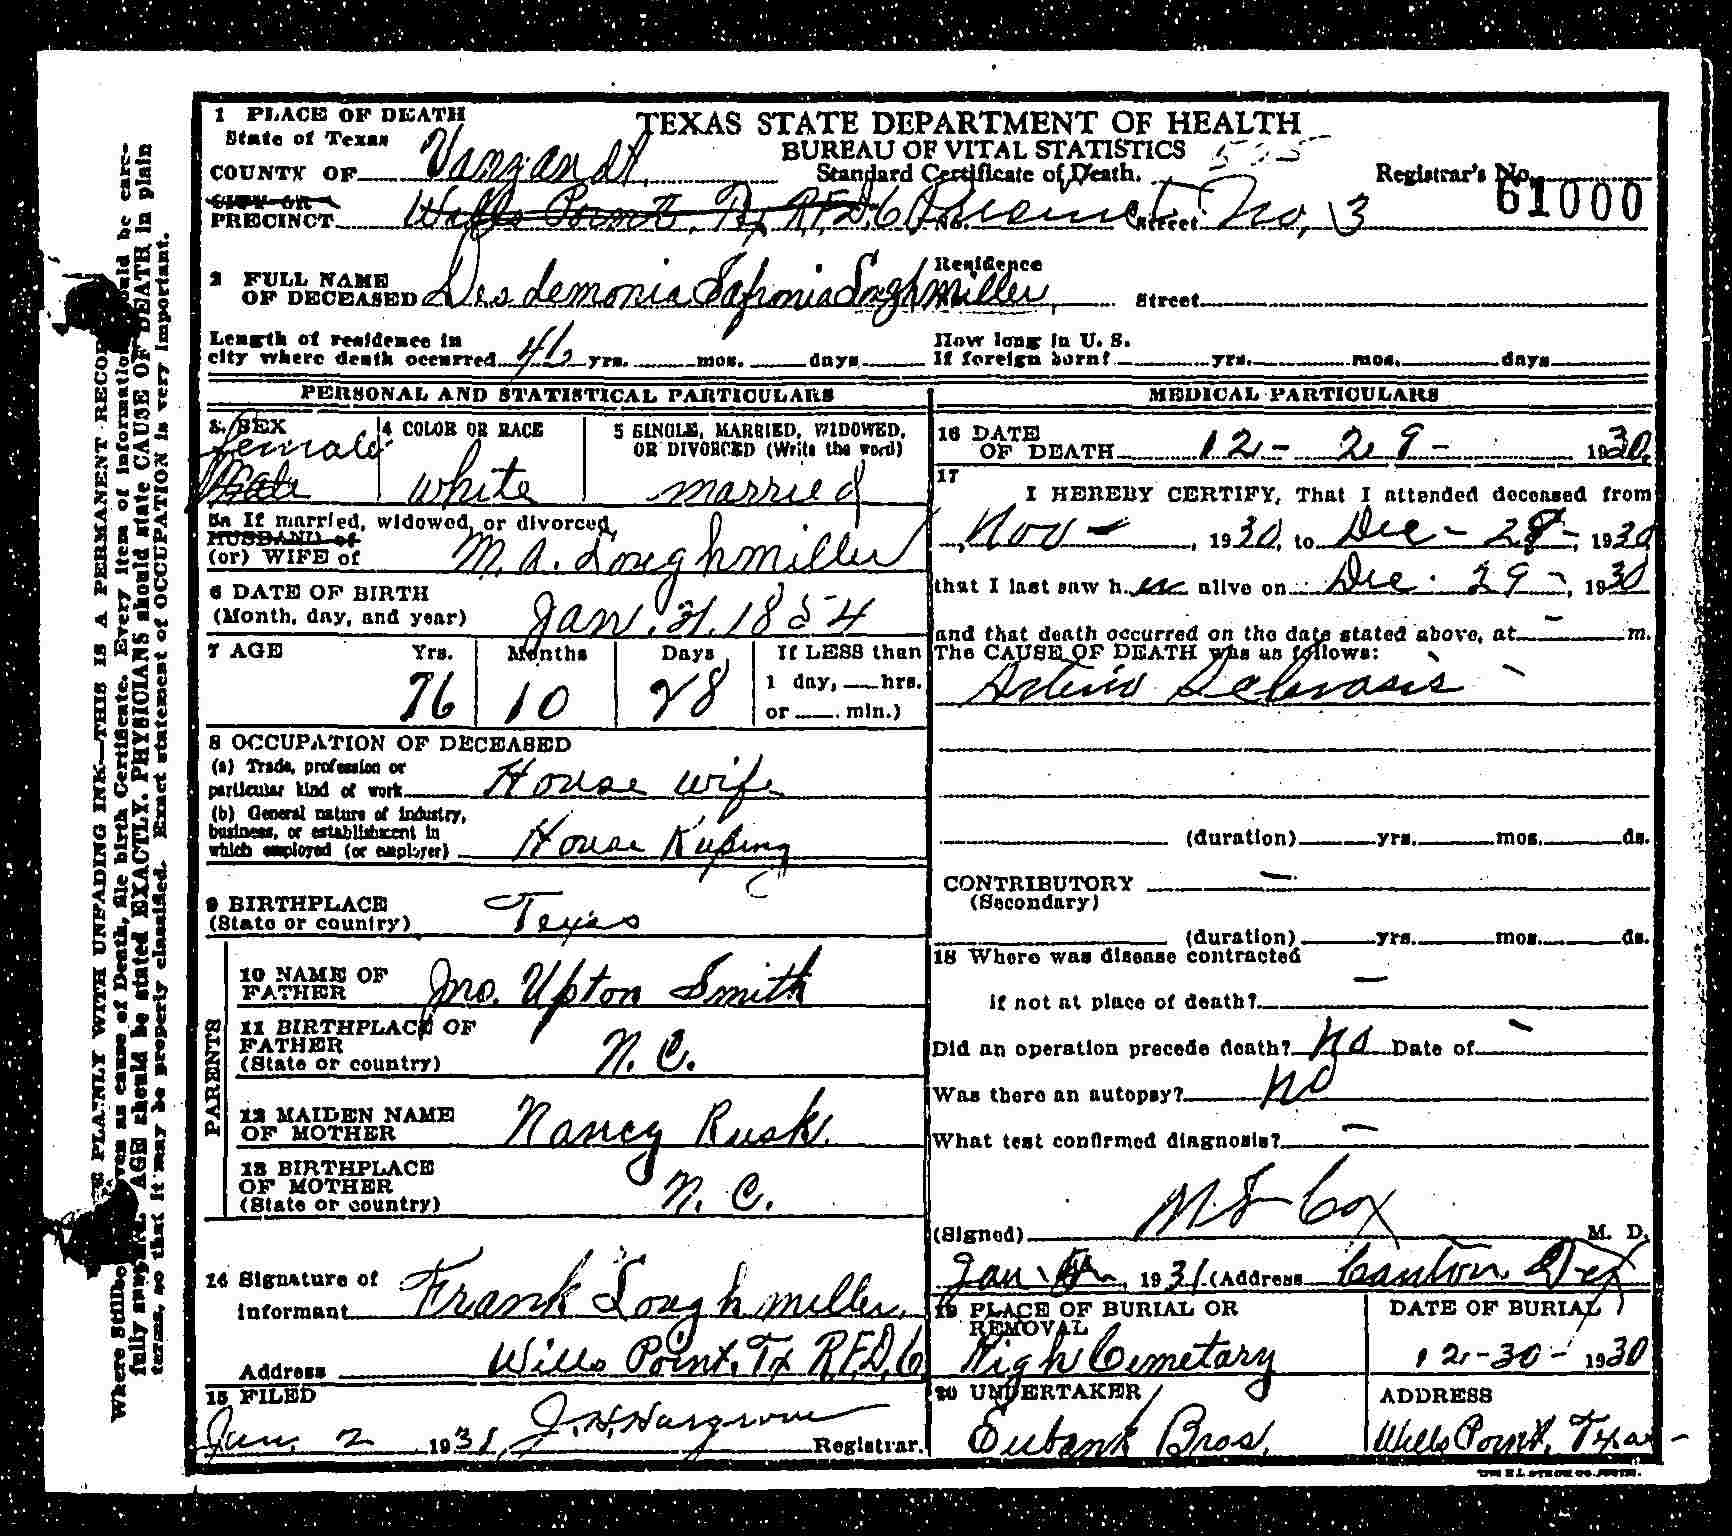 1 PLACE OF DEATH
State of Texas
COUNTY OF Vanzandt
TEXAS STATE DEPARTMENT OF HEALTH
BUREAU OF VITAL STATISTICS
Standard Certificate of Death.
Registrar's No.
61000
CITY OR
PRECINCT Wills Point, Tx R.F.D. 6 Precinct No. Street No, 3
2 FULL NAME
OF DECEASED Desdemonia Safronia Loghmiller
Residence
Street
Length of residence in
city where death occurred yrs. mos. days
How long in U. S.
If foreign born? yrs. mos. days
PERSONAL AND STATISTICAL PARTICULARS
3. SEX
female
Male
4 COLOR OR RACE
white
5 SINGLE, MARRIED, WIDOWED,
OR DIVORCED (Write the word)
married
5a If married, widowed, or divorced,
HUSBAND of
(or) WIFE of M. A. Loughmiller
6 DATE OF BIRTH
(Month, day, and year) Jan. 31. 1854
7 AGE Yrs. Months Days
76 10 28
If LESS than
1 day, hrs.
or min.)
8 OCCUPATION OF DECEASED
(a) Trade, profession or
particular kind of work House wife
(b) General nature of industry,
business, or establishment in
which employed (or employer) House Kuping
9 BIRTHPLACE
(State or country) Texas
PARENTS
10 NAME OF
FATHER Jno. Upton Smith
11 BIRTHPLACE OF
FATHER
(State or country) N. C.
12 MAIDEN NAME
OF MOTHER Nancy Rusk.
13 BIRTHPLACE
OF MOTHER
(State or country) N. C.
14 Signature of
Informant Frank Loughmiller,
Address Wills Point, Tx R.F.D. 6
15 FILED
Jan. 2 1931, J. H. Hargrove Registrar.
MEDICAL PARTICULARS
16 DATE
OF DEATH 12 - 29 - 1930
17
I HEREBY CERTIFY, That I attended deceased from
Nov - , 1930, to Dec - 28 -, 1930
that I last saw her alive on Dec. 29 -, 1930
and that death occurred on the date stated above, at - m.
The CAUSE OF DEATH was as follows:
Arterio Sclerosis
(duration) yrs. mos. ds.
CONTRIBUTORY -
(Secondary)
(duration) yrs. mos. ds.
18 Where was disease contracted
if not at place of death? -
Did an operation precede death? No Date of -
Was there an autopsy? No
What test confirmed diagnosis? -
(Signed) Cox M. D.
Jan 1931 (Address Canton, Tex
19 PLACE OF BURIAL OR
REMOVAL
High Cemetary
DATE OF BURIAL
12-30- 1930
20 UNDERTAKER
Eubank Bros.
ADDRESS
Wills Point, Texas
WRITE PLAINLY WITH UNFADING INK—THIS IS A PERMANENT RECORD
fully supplied. AGE should be stated EXACTLY. PHYSICIANS should state CAUSE OF DEATH in plain
terms, so that it may be properly classified. Exact statement of OCCUPATION is very important.